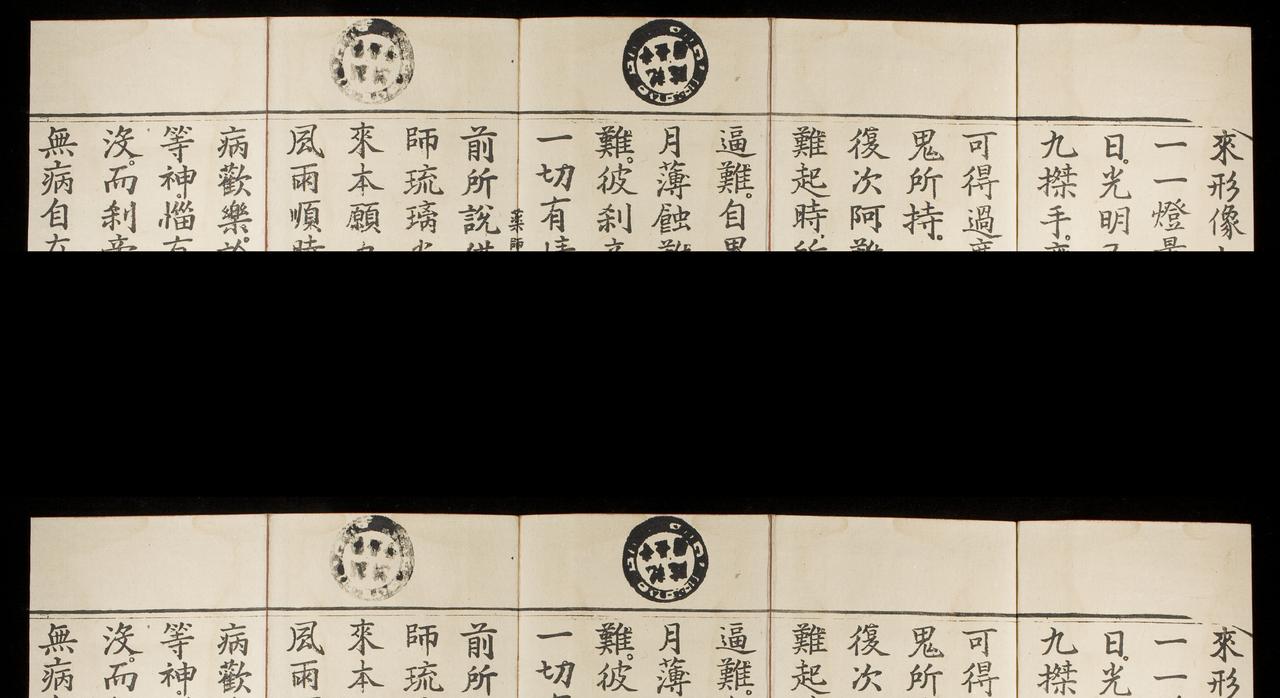 來形像
一一燈
日。光明
九搩手。
可得過
鬼所持。
復次阿
難起時。
逼難。自
月薄蝕
難。彼刹
一切有
藥師
前所說
師琉璃
來本願
風雨順
病歡樂。
等神。惱
沒。而刹
無病自
來形
一一
日。光
九搩
可得
鬼所
復次
難起
逼難。
月薄
難。彼
一切
前所
師琉
來本
風雨
病歡
等神。
沒。而
無病